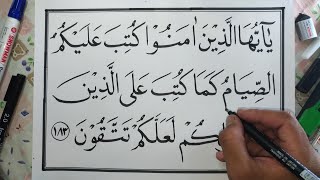 يٰٓاَيُّهَا الَّذِيْنَ اٰمَنُوْا كُتِبَ عَلَيْكُمُ
الصِّيَامُ كَمَا كُتِبَ عَلَى الَّذِيْنَ
لَعَلَّكُمْ تَتَّقُوْنَ ١٨٣
SNOWMAN
2.0